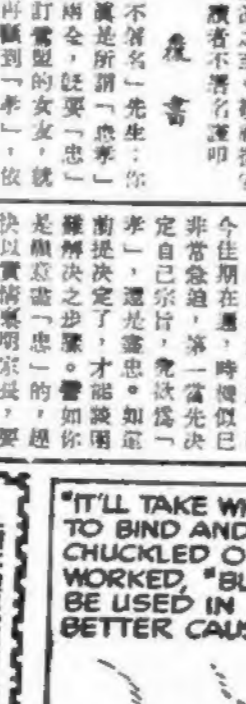 讀者不署名謹叩
復書
不署名」先生：你
真是所謂「忠孝」
兩全，既要「忠」
訂鴛盟的女友，就
再顧到「孝」，依
今佳期在邇，時機似已
非常急迫，第一當先決
定自己宗旨，究欲為「
孝」，還是盡忠。如能
前提決定了，才能談困
難解決之步驟。譬如你
是願意盡「忠」的，趕
快以實情稟明家長，要
"IT'LL TAKE
TO BIND AND
CHUCKLED
WORKED, "
BE USED IN
BETTER